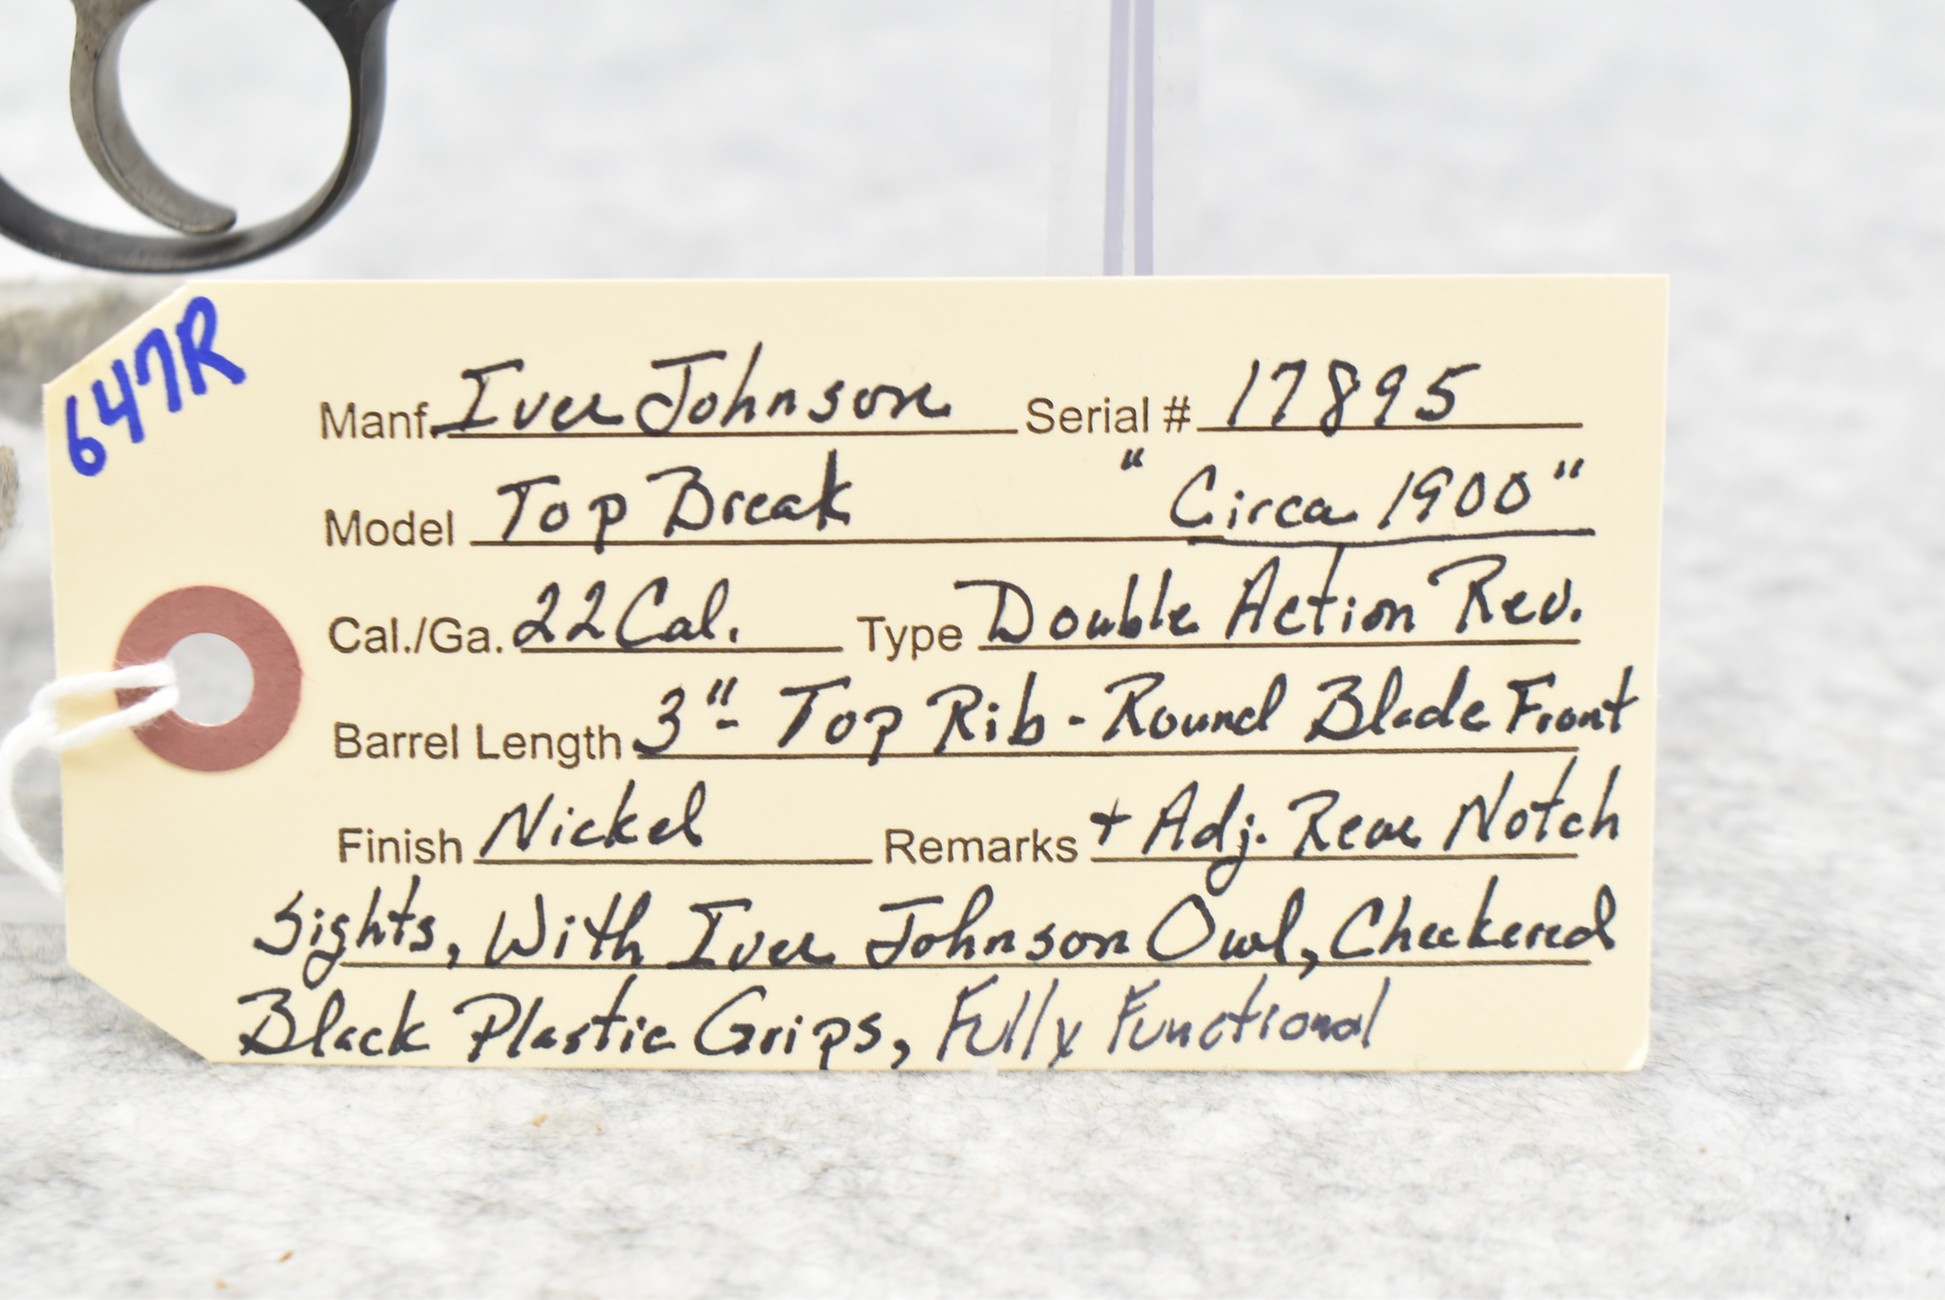 647R
Manf. Iver Johnson Serial # 17895
Model Top Break "Circa 1900"
Cal./Ga. 22 Cal. Type Double Action Rev.
Barrel Length 3" - Top Rib - Round Blade Front
Finish Nickel Remarks + Adj. Rear Notch
Sights, With Iver Johnson Owl, Checkered
Black Plastic Grips, Fully Functional